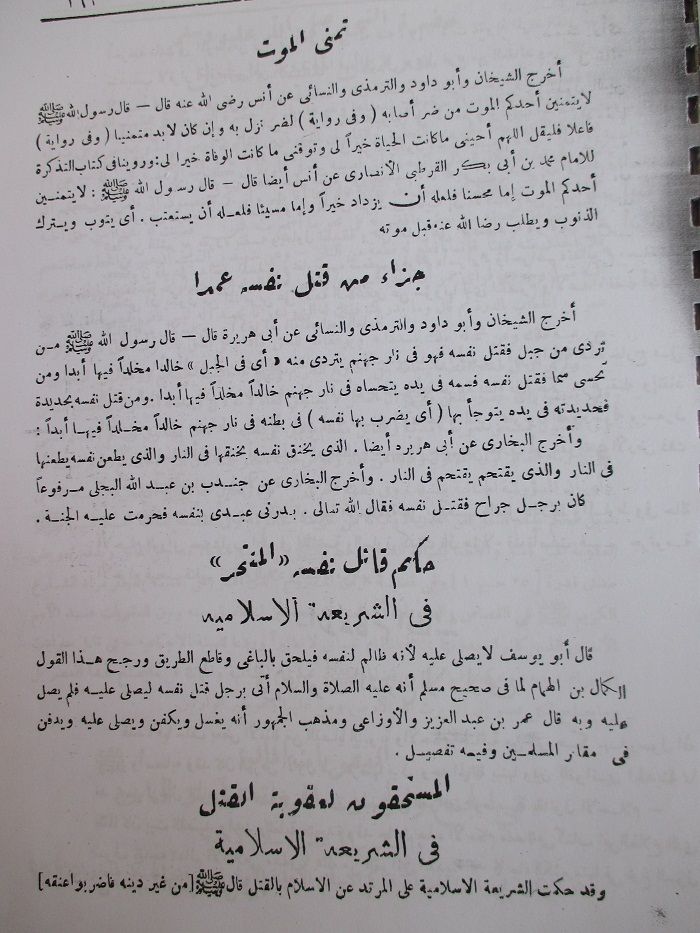 تمنى الموت
أخرج الشيخان وأبو داود والترمذى والنسائى عن أنس رضى الله عنه قال — قال رسول الله ﷺ
لايتمنين أحدكم الموت من ضر أصابه ( وفى رواية ) لضر نزل به وإن كان لابد متمنيا ( وفى رواية )
فاعلا فليقل اللهم أحينى ماكانت الحياة خيراً لى وتوفنى ما كانت الوفاة خيرا لى: وروينا فى كتاب التذكرة
للامام محمد بن أبى بكر القرطبى الأنصارى عن أنس أيضا قال — قال رسول الله ﷺ : لايتمنين
أحدكم الموت إما محسنا فلعله أن يزداد خيراً وإما مسيئا فلعله أن يستعتب . أى يتوب ويترك
الذنوب ويطلب رضا الله عنه قبل موته
جزاء من قتل نفسه عمدا
أخرج الشيخان وأبو داود والترمذى والنسائى عن أبى هريرة قال — قال رسول الله ﷺ من
تردى من جبل فقتل نفسه فهو فى نار جهنم يتردى منه « أى فى الجبل » خالدا مخلداً فيها أبدا ومن
تحسى سما فقتل نفسه فسمه فى يده يتحساه فى نار جهنم خالداً مخلداً فيها أبدا . ومن قتل نفسه بحديدة
فحديدته فى يده يتوجأ بها ( أى يضرب بها نفسه ) فى بطنه فى نار جهنم خالداً مخلداً فيها أبداً :
وأخرج البخارى عن أبى هريره أيضا . الذى يخنق نفسه يخنقها فى النار والذى يطعن نفسه يطعنها
فى النار والذى يقتحم يقتحم فى النار . وأخرج البخارى عن جندب بن عبد الله البجلى مرفوعاً
كان برجل جراح فقتل نفسه فقال الله تعالى . بدرنى عبدى بنفسه فحرمت عليه الجنة .
حكم قاتل نفسه «المنتحر»
فى الشريعة الاسلاميه
قال أبو يوسف لايصلى عليه لأنه ظالم لنفسه فيلحق بالباغى وقاطع الطريق ورجح هذا القول
الكمال بن الهمام لما فى صحيح مسلم أنه عليه الصلاة والسلام أتى برجل قتل نفسه ليصلى عليه فلم يصل
عليه وبه قال عمر بن عبد العزيز والأوزاعى ومذهب الجمهور أنه يغسل ويكفن ويصلى عليه ويدفن
فى مقابر المسلمين وفيه تفصيل .
المستحقون لعقوبة القتل
فى الشريعة الاسلامية
وقد حكمت الشريعة الاسلامية على المرتد عن الاسلام بالقتل قال ﷺ [من غير دينه فاضربوا عنقه]